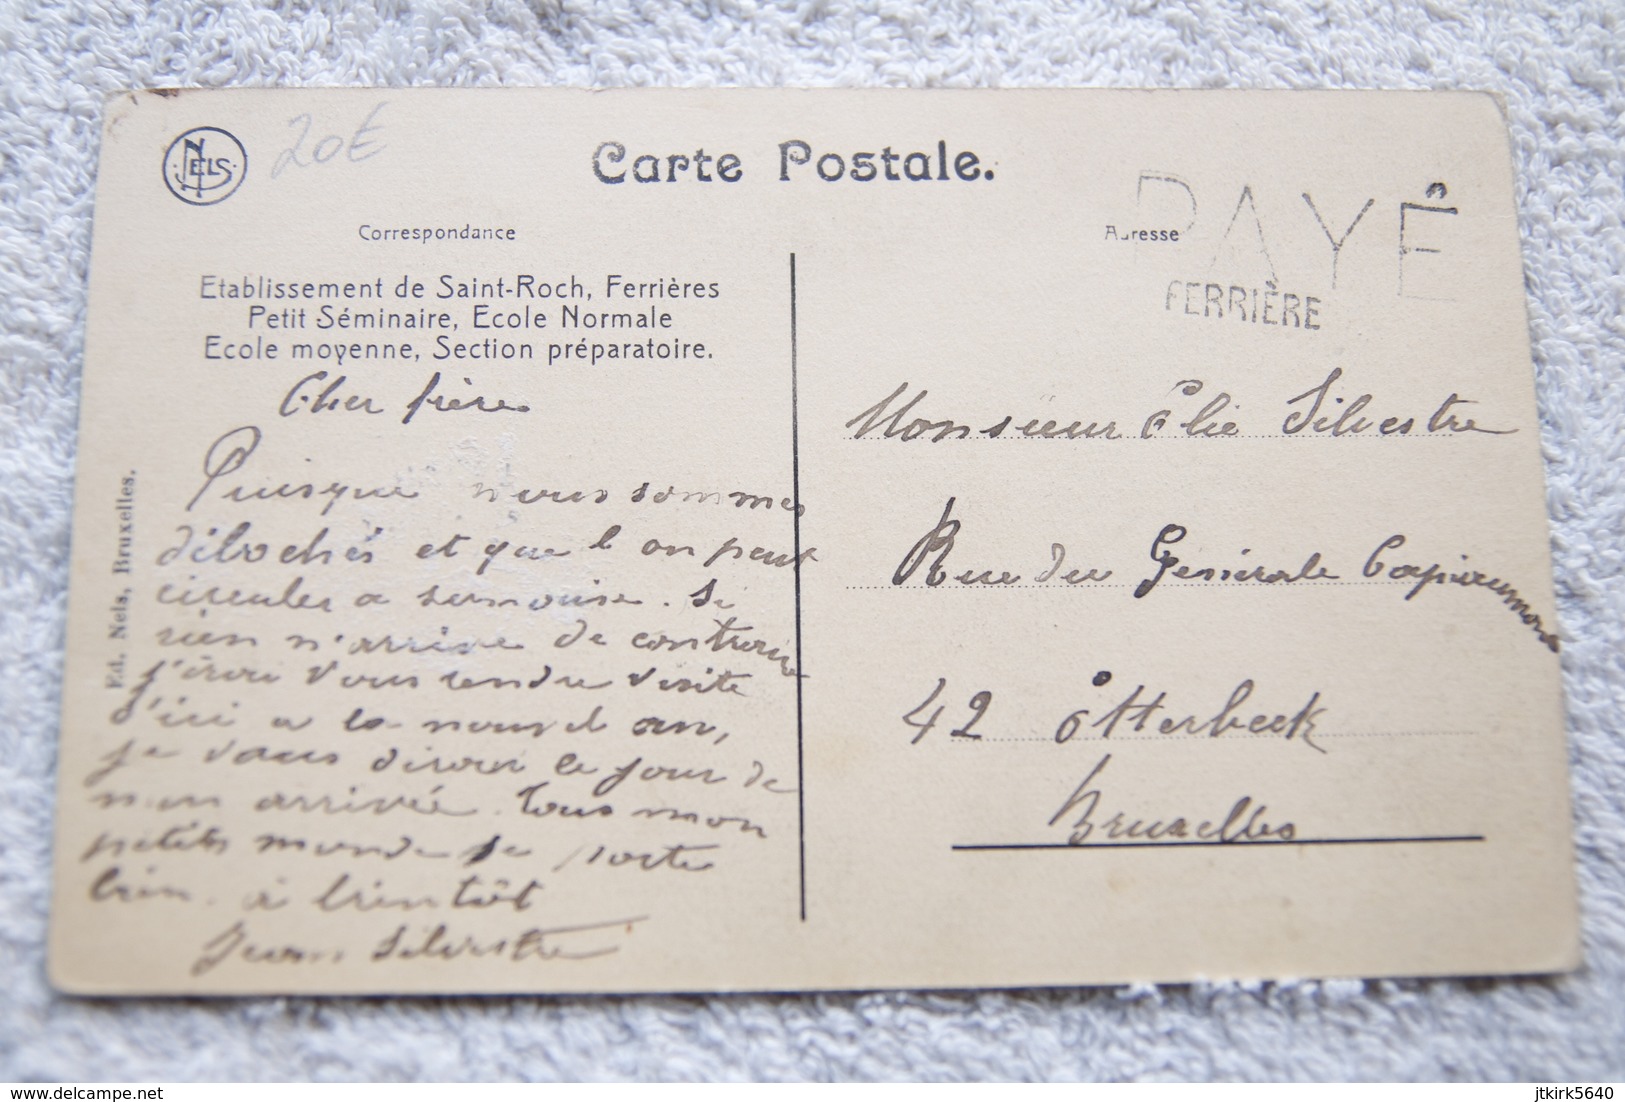 NELS
20€
Carte Postale.
Correspondance
Etablissement de Saint-Roch, Ferrières
Petit Séminaire, Ecole Normale
Ecole moyenne, Section préparatoire.
Cher frère
Puisque nous sommes
débochés et que l on peut
circuler a
rien n'arrive de contraire
j'irai vous rendre visite
d'ici a la nouvel an,
je vous dirai le jour de
mon arrivée. Tous mon
petits monde se porte
bien. à bientôt
Jean Silvestre
Ed. Nels, Bruxelles.
Adresse
PAYÉ
FERRIÈRE
Monsieur Elie Silvestre
Rue du Génerale Capiaumont
42 Etterbeek
Bruxelles
www.delcampe.net
jtkirk5640